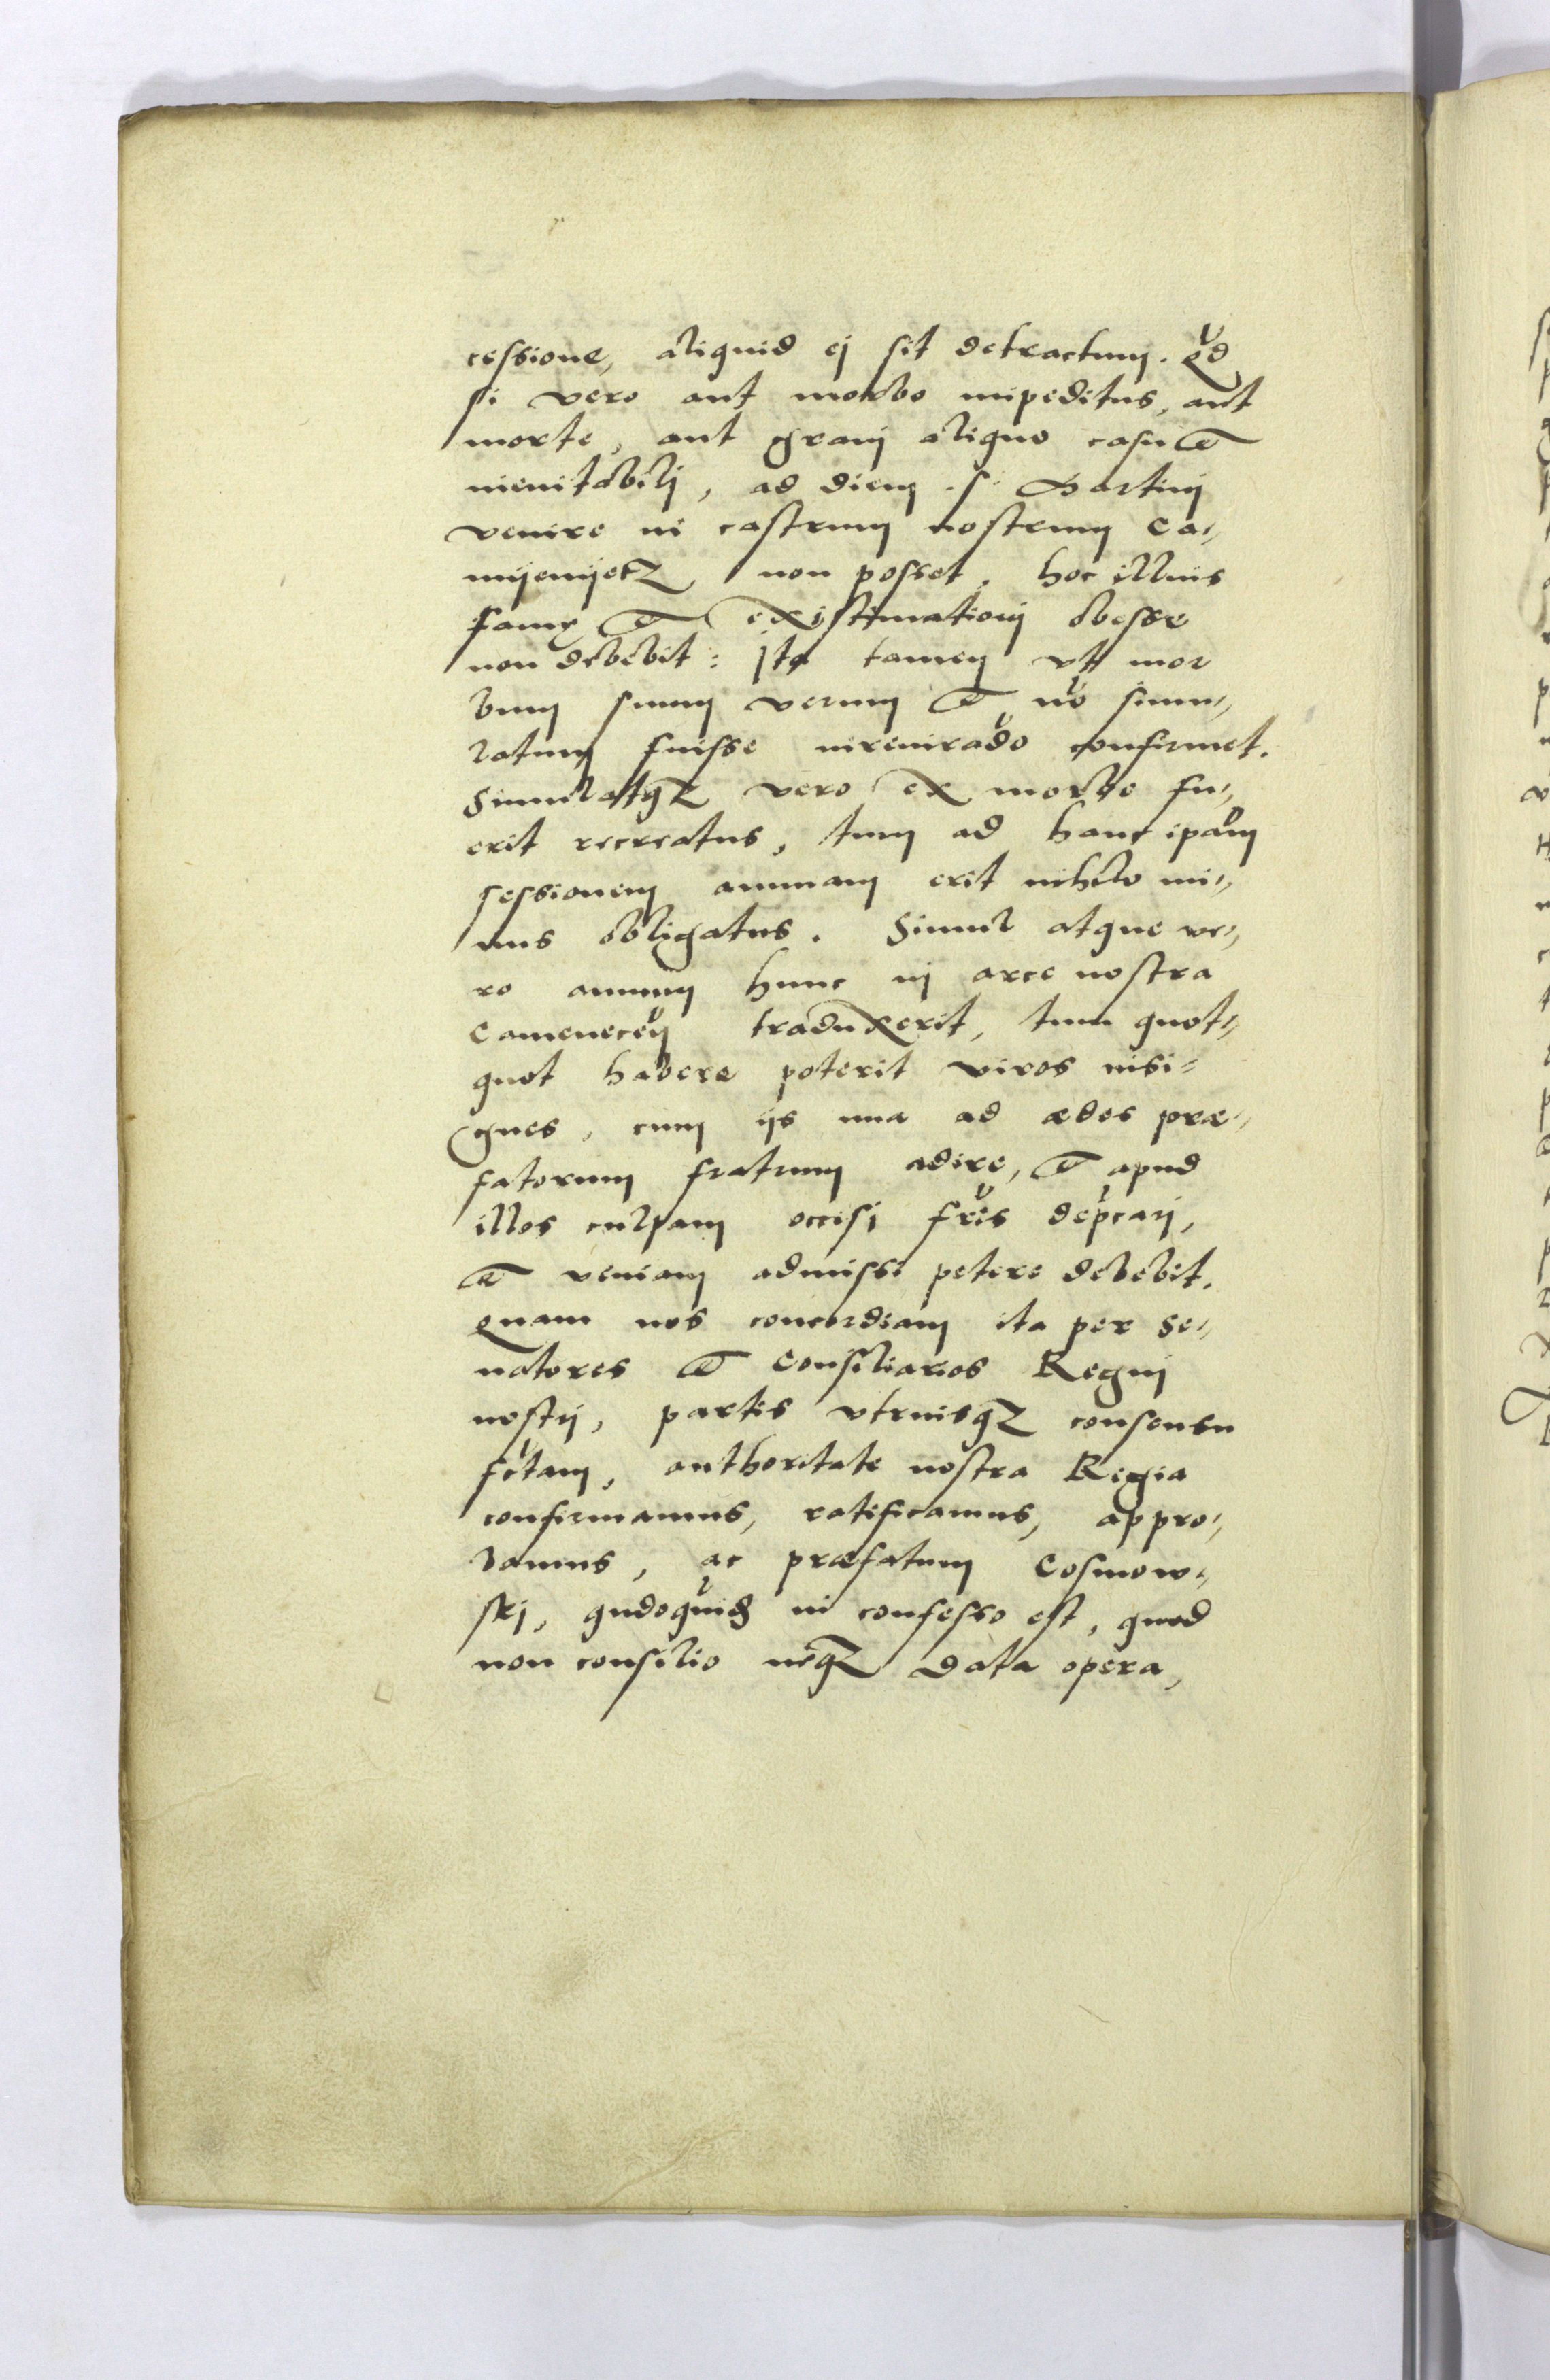 cessione, aliquid ej sit detractum. Qd
si vero aut morbo impeditus, aut
morte, aut gravi aliquo casu et
inevitabilj, ad diem S Martinj
venire in castrum nostrum Ca⸗
mijenijecz non posset, hoc illius
famę et existimationj obesse
non debebit: Ita tamen vtt mor
bum suum verum et no simu⸗
latum fuisse iureiurado confirmet.
Simulatqz vero ex morbo fu⸗
erit recreatus, tum ad hanc ipam
sessionem annuam erit nihilo mi⸗
nus obligatus. Simul atque ve⸗
ro annum hunc in arce nostra
Cameneceñ traduxerit, tum quot⸗
quot habere poterit viros insi⸗
gnes, cum ijs una ad ædes præ⸗
fatorum fratrum adire, et apud
illos culpam occisi fris depcarj,
et veniam admissi petere debebit.
Quam nos concordiam ita per Se⸗
natores et Consiliarios Regnj
nostrj, partis vtriusqz consensu
fctam, authoritate nostra Regia
confirmamus, ratificamus, appro⸗
bamus, ac præfatum Cosmow⸗
skj, qndoquid in confesso est, quod
non consilio neqz data opera,